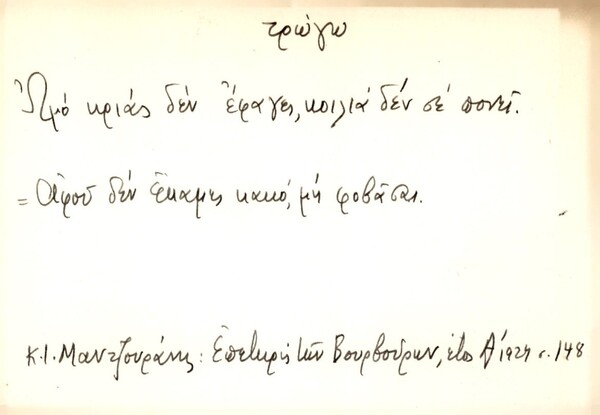 τρώγω
Ὠμό κριάς δέν ἔφαγες, κοιλιά δέν σέ πονεῖ.
= Ἀφοῦ δέν ἔκαμες κακό, μή φοβᾶσαι.
Κ.Ι. Μαντζουράνης: Ἐπετηρίς τῶν Βουρβούρων, ἔτος Α' 1924 σ. 148